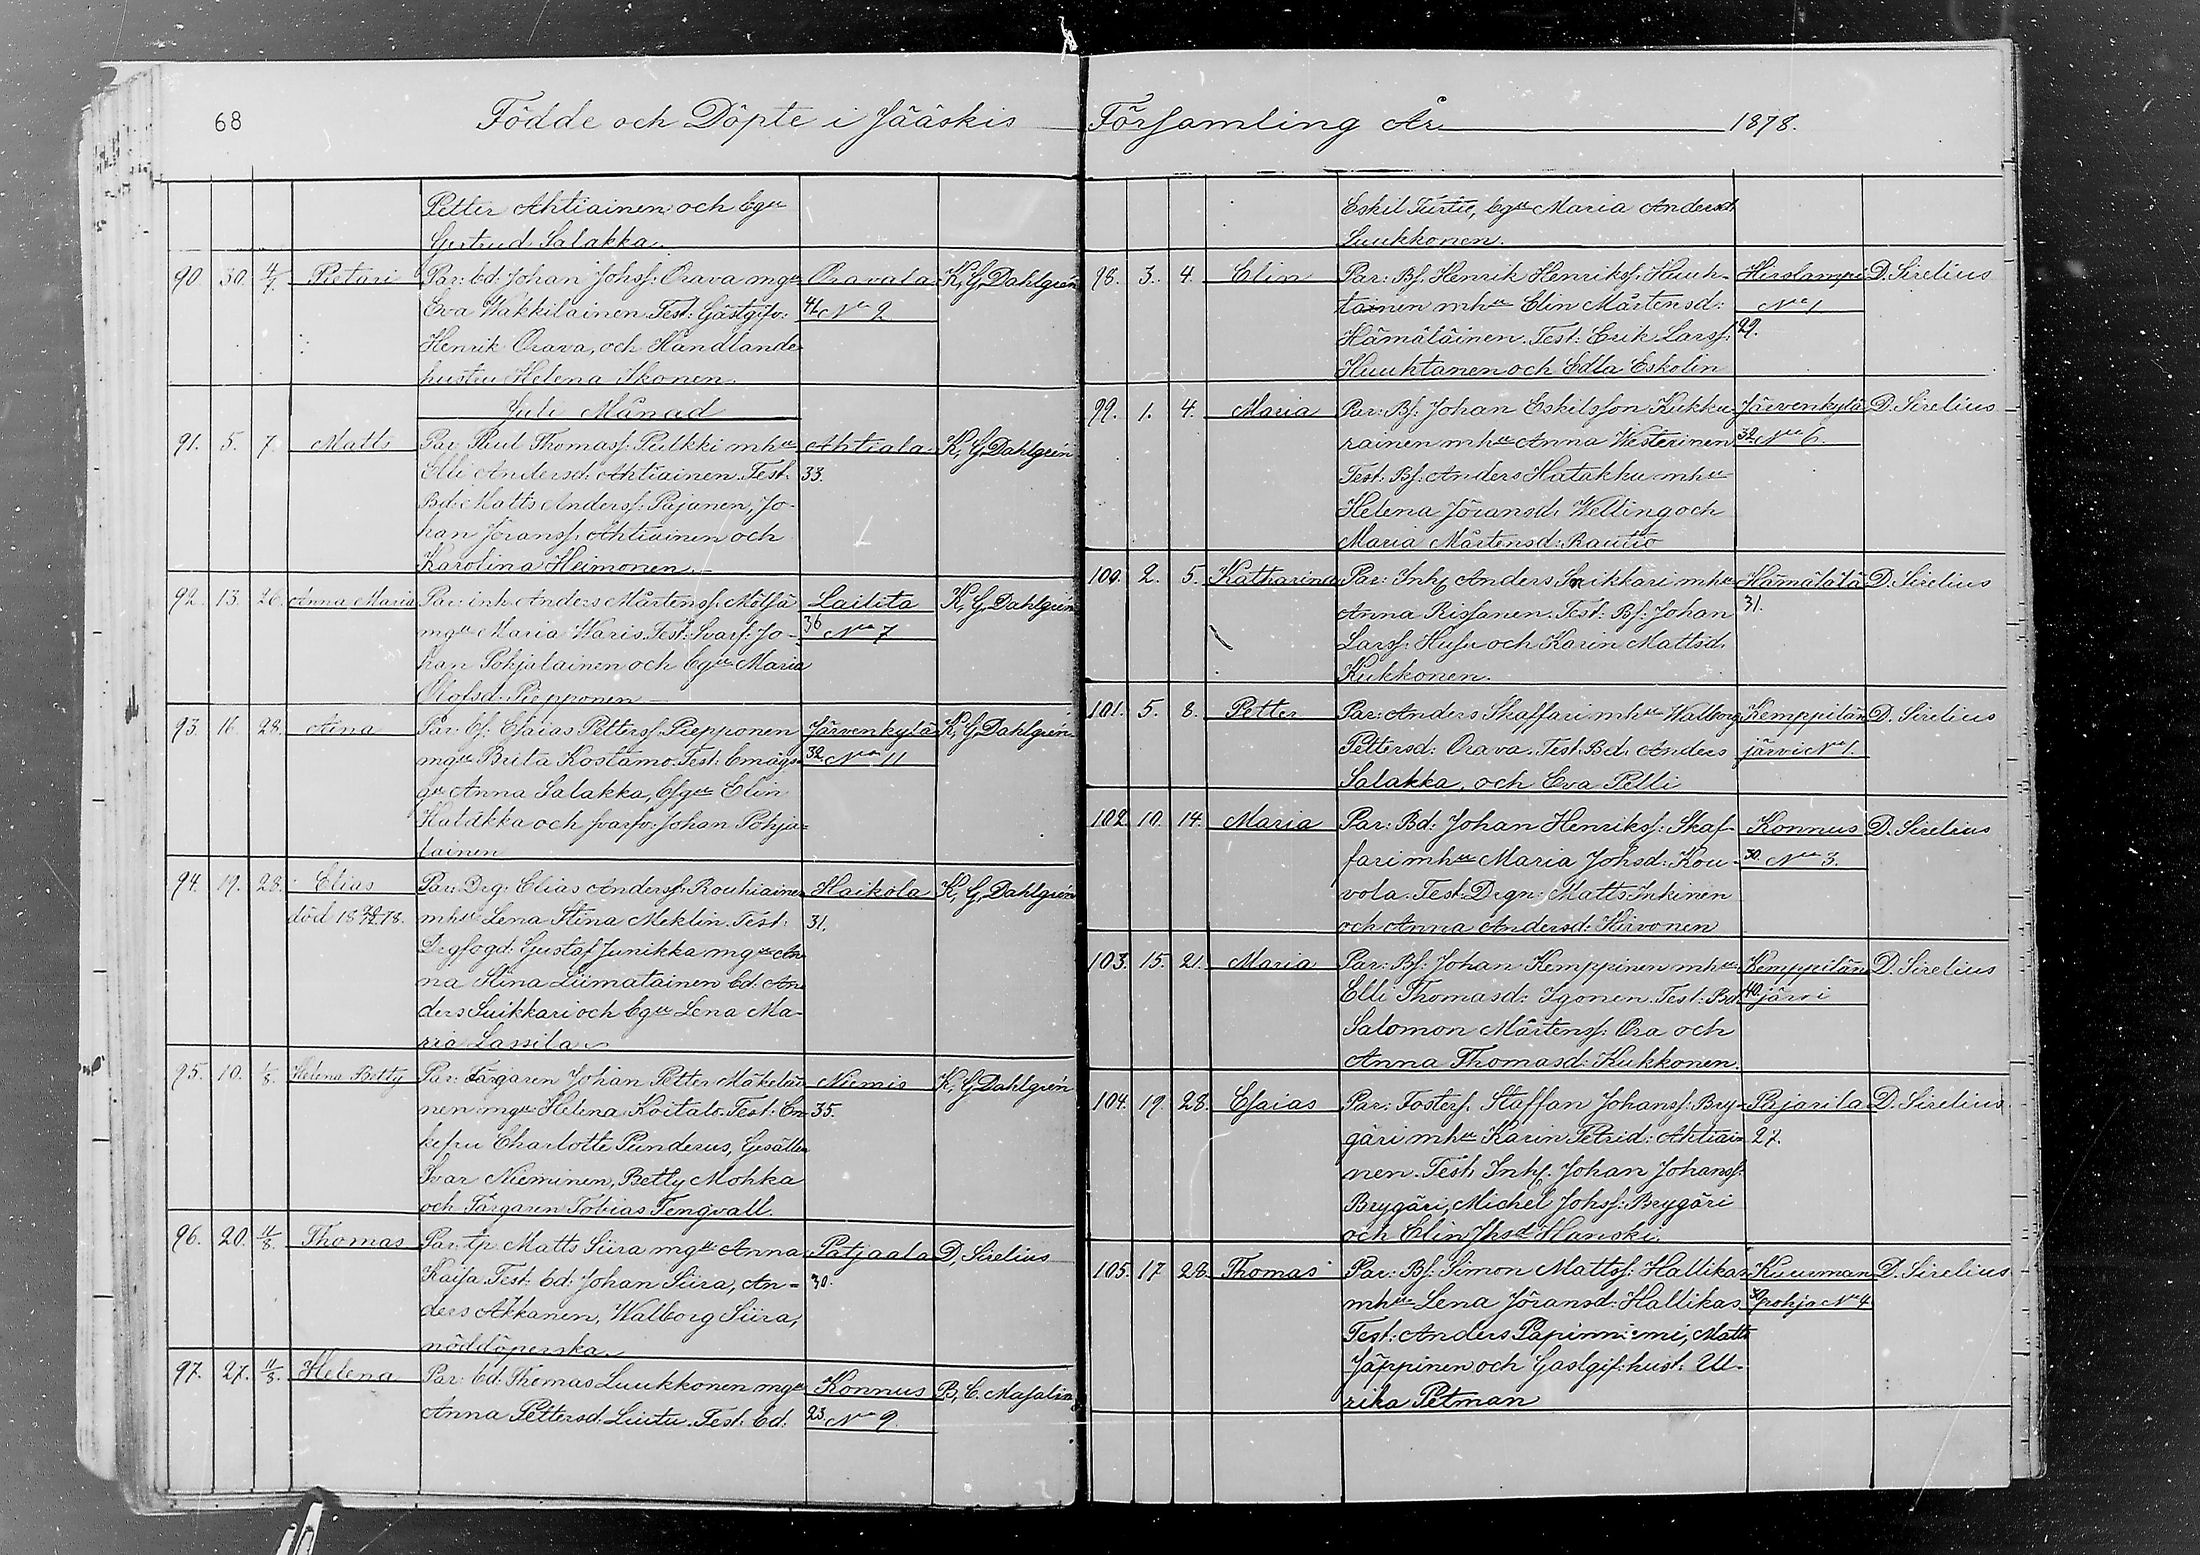 68
Födde och Döpte i Jääskis Församling År 1878.
Petter Ahtiainen och bgu
Gertrud Salakka.
90. 30. 4/7 Pietari Par: bd: Johan Johsf: Orava mgu Oravala K. G. Dahlgrén
Eva Wakkilainen. Test: Gästgifv: 41. No 2
Henrik Orava, och Handlande
hustru Helena Ikonen.
Juli Månad
91. 5. 7. Matts Par: Paul Thomasf: Pulkki mhu Ahtiala K. G. Dahlgrén
Elli Andersd: Ahtiainen. Test: 33.
Bd: Matts Andersf: Pajanen, Jo-
han Joransf: Ahtiainen och
Karolina Heimonen.
92. 13. 26. Anna Maria Par: inh: Anders Mårtensf: Mölsä Lailita K. G. Dahlgrén
mgu Maria Waris. Test: Svarf: Jo- 36 No 7
han Pohjalainen och bgu Maria
Olofsd: Piepponen
93. 16. 28. Aina Par: bf: Esaias Pettersf: Piepponen Järvenkylä K. G. Dahlgrén
mgu Brita Kostamo. Test: bmågs- 32. No 11
gu Anna Salakka, bfgu Elin
Kaläkka och svarfv: Johan Pohja-
lainen
94. 19. 28. Elias Par: Drg: Elias Andersf: Rouhiainen Haikola K. G. Dahlgrén
död mhu Lena Stina Meklin. Test: 31.
Drgfogd: Gustaf Junikka mgu An
na Stina Liimatainen bd: An
ders Suikkari och bgu Lena Ma-
ria Lassila.
95. 10. 1/8. Helena Betty Par: Färgaren Johan Petter Mäkeläi Niemis K. G. Dahlgrén
nen mgu Helena Koitalo. Test: En 35.
kefru Charlotte Punderus, Gesällen
Ivar Nieminen, Betty Mohka
och Färgaren Tobias Tengvall.
96. 20. 11/8. Thomas Par: tp Matts Siira mgu Anna Patjaala D. Sirelius
Kaisa. Test: bd: Johan Siira, An- 30.
ders Akkanen, Walborg Siira,
nöddöperska.
97. 27. 11/8. Helena Par: bd: Thomas Luukkonen mgu Konnus B. E. Masalin
Anna Pettersd: Liutu. Test: bd: 23. No 9
Eskil Turtu, bgu Maria Andersd:
Luukkonen.
98. 3. 4. Elin Par: Bf: Henrik Henriksf: Huuh- Hirslampi D. Sirelius
tainen mhu Elin Mårtensd: No 1
Hämäläinen. Test: Erik Larsf: 29.
Huuhtanen och Edla Eskolin
99. 1. 4. Maria Par: Bf: Johan Eskilsson Kukku- Järvenkylä D. Sirelius
rainen mhu Anna Westerinen 32. No 6.
Test: Bf: Anders Hatakku mhu
Helena Joransd: Welling och
Maria Mårtensd: Rautio
100. 2. 5. Katharina Par: Inhf Anders Suikkari mhu Hämälälä D. Sirelius
Anna Rissanen. Test: Bf: Johan 31.
Larsf: Husu och Karin Mattsd:
Kukkonen.
101. 5. 8. Petter Par: Anders Skaffari mhu Walborg Kemppilän D. Sirelius
Pettersd: Orava. Test: Bd: Anders järvi No 1.
Salakka, och Eva Pelli
102 10. 14. Maria Par: Bd: Johan Henriksf: Skaf- Konnus D. Sirelius
fari mhu Maria Johsd: Kou- 30. No 3.
vola. Test: Drgn: Matts Inkinen
och Anna Andersd: Hirvonen
103. 15. 21. Maria Par: Bf: Johan Kemppinen mhu Kemppilän D. Sirelius
Elli Thomasd: Igonen. Test: Bd: 40. järvi
Salomon Mårtensf: Ora och
Anna Thomasd: Kukkonen.
104. 19. 28. Esaias Par: Fosterf: Staffan Johansf: Bry- Pajarila D. Sirelius
gäri mhu Karin Petrid: Ahtiai 27.
nen. Test: Inhf: Johan Johansf:
Brygäri, Michel Johsf: Brygäri
och Elin Jhsd Hanski.
105. 17 28. Thomas Par: Bf: Simon Mattsf: Hallikas Kuurman D. Sirelius
mhu Lena Joransd: Hallikas pohja No 4
Test: Anders Papinniemi, Matts
Jäppinen och Gastgif: hust: Ul-
rika Petman